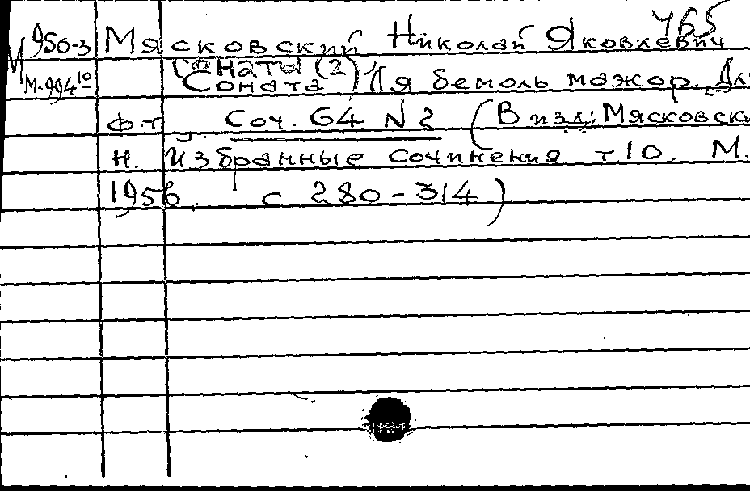 465
М 950-3 Мясковский Николай Яковлевич
Сонаты (2)
М-994 10 Соната Ля бемоль мажор. Для
ф-п. Соч. 64 N 2 (В изд: Мясковски
Н. Избранные сочинения т 10. М.
1956. с 280-314)